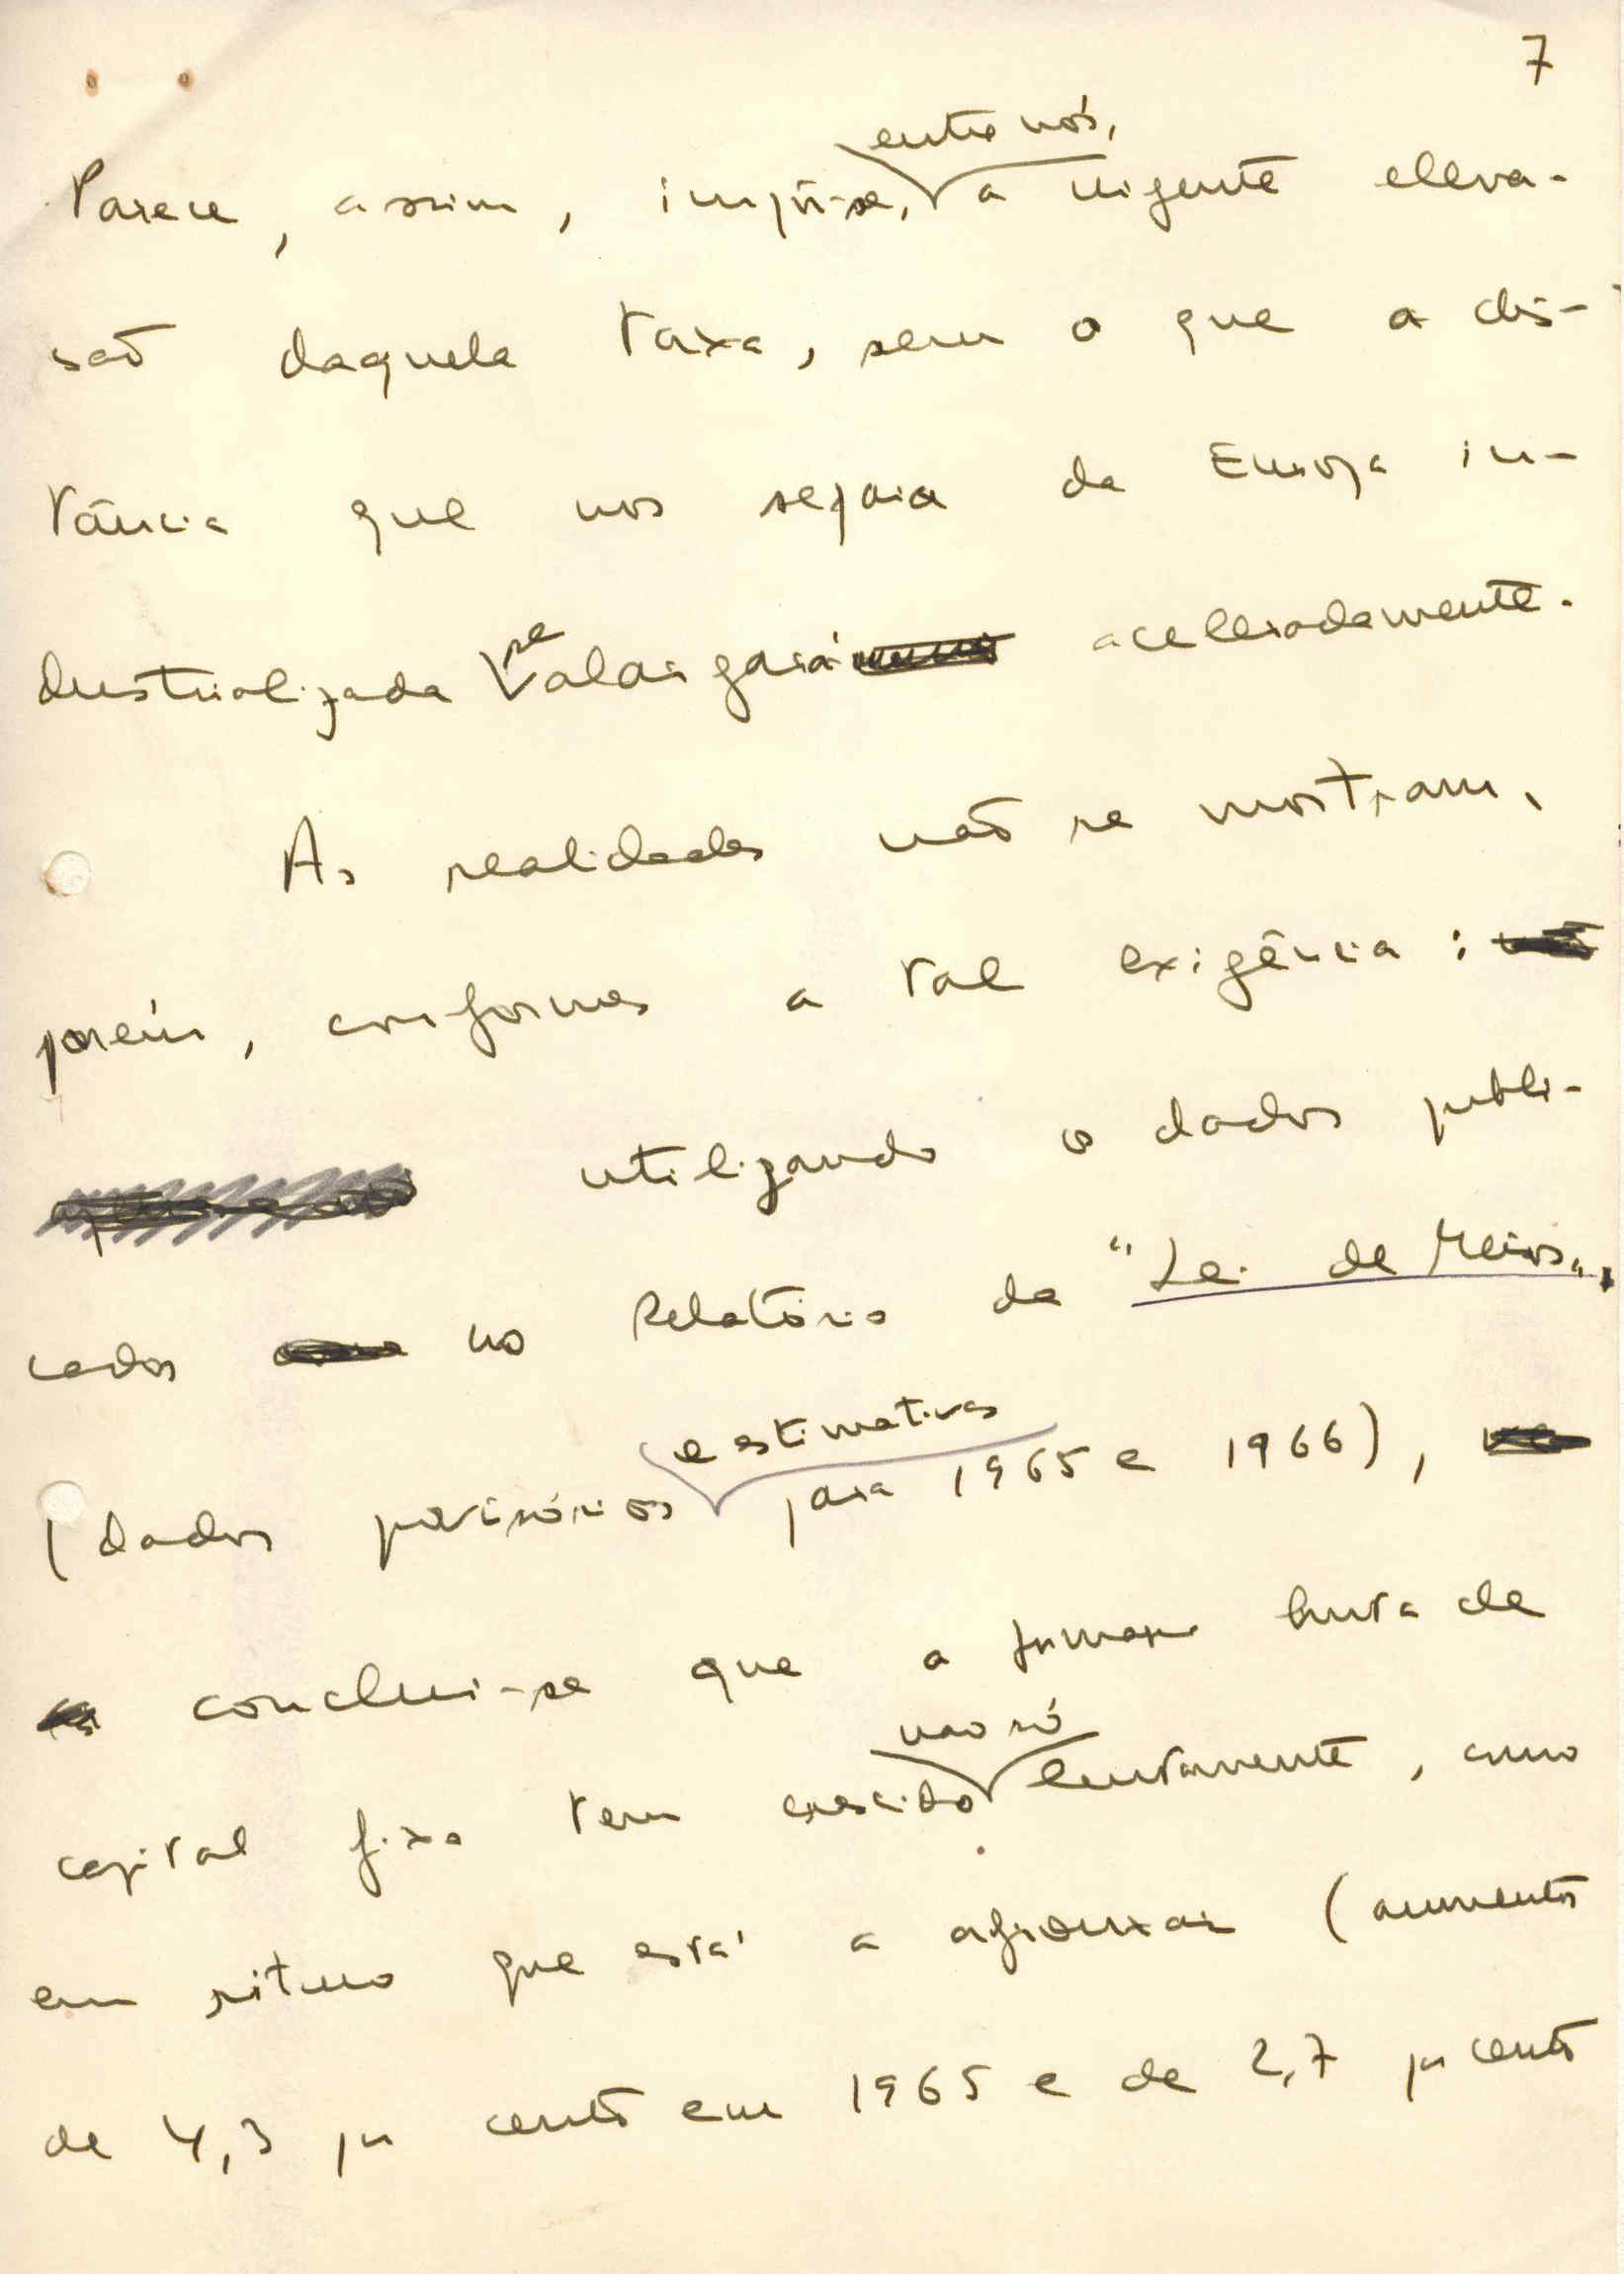 7
entre nós,
Parece, assim, impôr-se, a urgente eleva-
ção daquela taxa, sem o que a dis-
tância que nos separa da Europa in-
dustrializada se alargará aceleradamente.
As realidades não se mostram,
porém, conformes a tal exigência:
utilizando os dados publi-
cados no Relatório da "Lei de Meios",
e estimativas
(dados provisórios para 1965 e 1966),
conclui-se que a formação bruta de
não só
capital fixo tem crescido lentamente, como
em ritmo que está a afrouxar (aumentos
de 4,3 por cento em 1965 e de 2,7 por cento